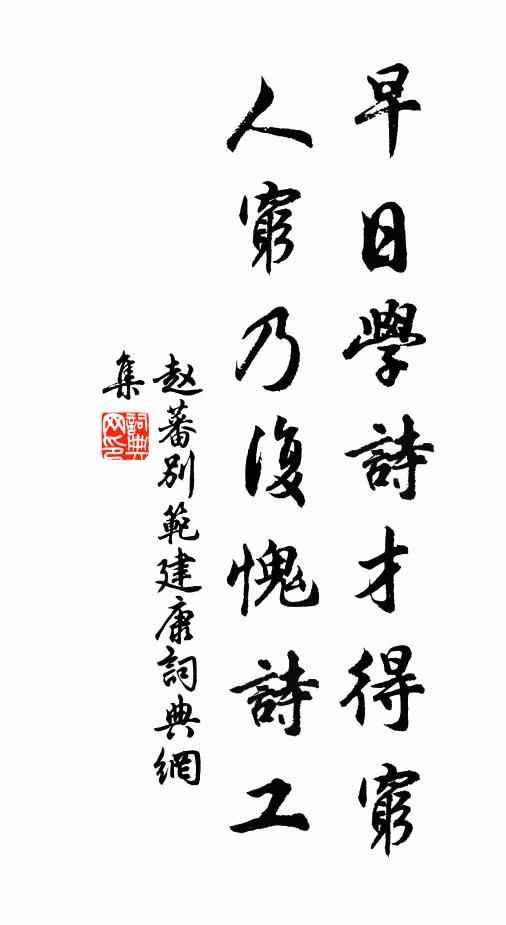 早日學詩才得窮
人窮乃復愧詩工
赵蕃別範建康詞典網
集
詞典
网印